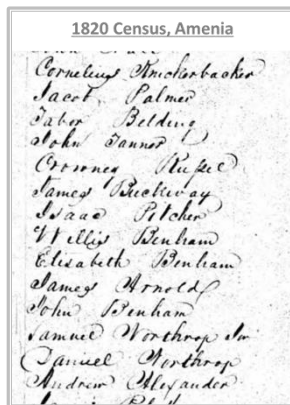 1820 Census, Amenia
Cornelius Knickerbacker
Jacob Palmer
Tabor Belding
John Tanner
Russel
James Buckway
Isaac Pitcher
Willis Benham
Elisabeth Benham
James Arnold
John Benham
Samuel Northrop Jr
Samuel Northrop
Andrew Alexander